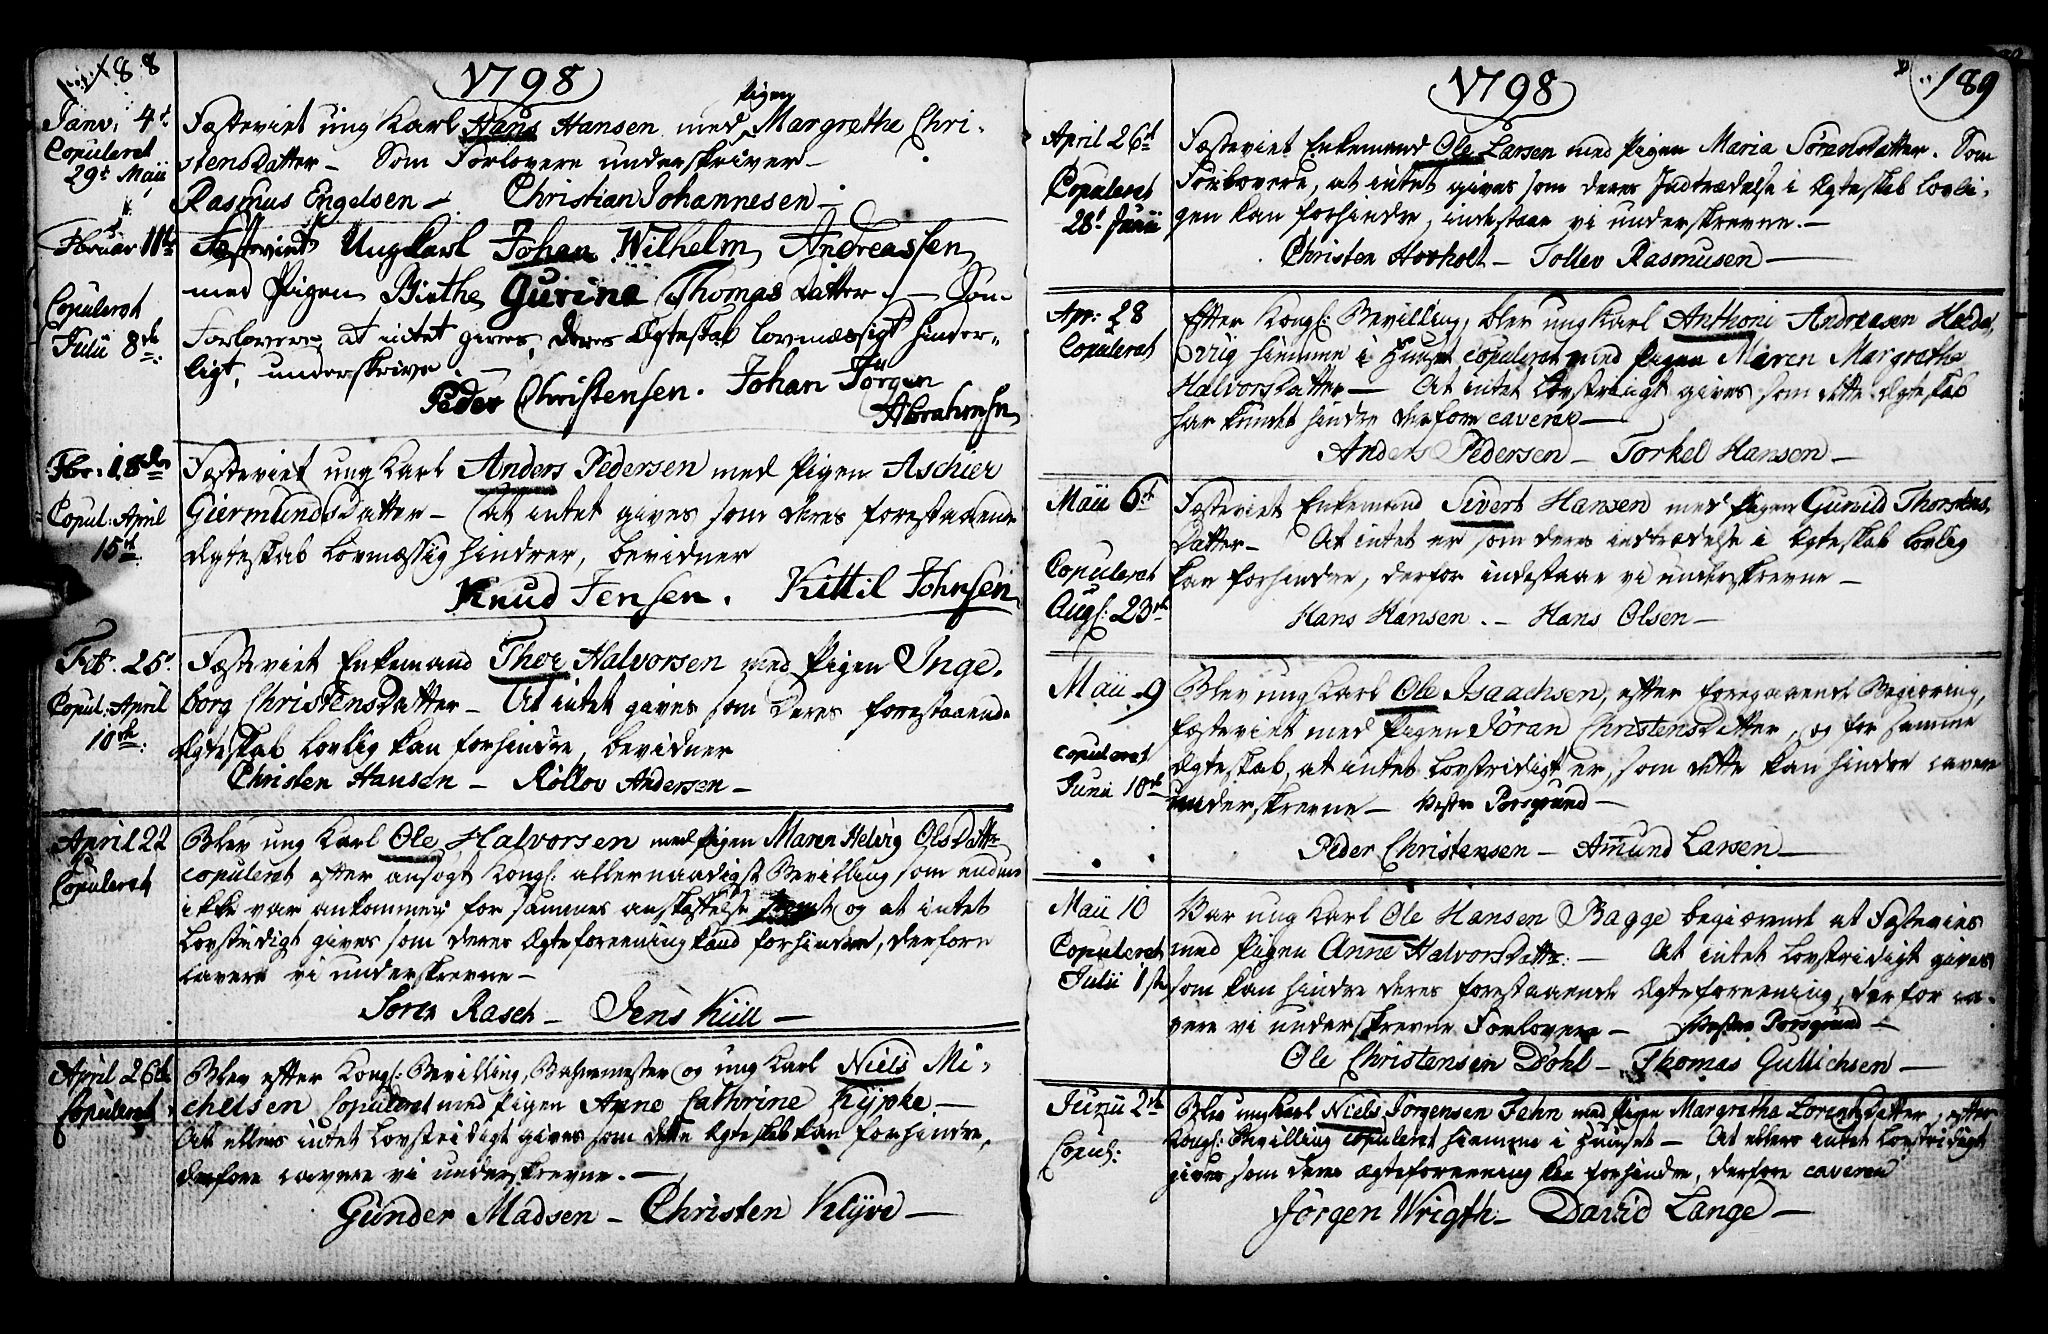 188
1798
Janv: 4t
Copuleret
29t Maij
Pigen
Fæsteviet ung Karl Hans Hansen med Margrethe Chri-
stensDatter – Som Forlovere underskriver –
Rasmus Engelsen – Christian Johannesen –
Februar 11te
Copuleret
Julii 8de
Fæsteviet Ungkarl Johan Wilhelm Andreassen
med Pigen Birthe Gurine Thomas Datter – Som
Forlovere at intet gives, deres Ægteskab lovmæssigt hinder-
ligt, underskrive –
Peder Christensen. Johan Jörgen
Abrahmsen
Fbr: 18de
Copul: April
15de
Fæsteviet ung Karl Anders Pedersen med Pigen Aschier
GiermundsDatter – at intet gives som deres forestaaende
Ægteskab lovmæssig hindrer, bevidner
Knud Jensen. Kittil Johnsen
Feb. 25t
Copul: April
10de
Fæsteviet Enkemand Thor Halvorsen med Pigen Inge-
borg ChristensDatter – At intet gives som deres forestaaende
Ægteskab lovlig kan forhindre, bevidner
Christen Hansen – Rollov Andersen –
April 22
Copuleret
Blev ung Karl Ole Halvorsen med Pigen Maren Helvig OlsDattr
copuleret efter ansøgt Kongl: allernaadigst Bevilling, som endnu
ikke var ankommen for sammes anskaffelse og at intet
lovstridigt gives som deres Ægteforeening kand forhindre, derfore
cavere vi underskrevne –
Sören Rasch – Jens Küll –
April 26de
Copuleret
Blev efter Kongl: Bevilling, og ung Karl Niels Mi-
chelsen Copuleret med Pigen Anne Cathrine Kypke –
At ellers intet lovstridigt gives som dette Ægteskab kan forhindre,
derfore cavere vi underskrevne. –
Gunder Madsen – Christen Klÿve –
189
1798
April 26d
Copuleret
28t Junii
Fæsteviet Enkemand Ole Larsen med Pigen Maria SörensDatter. Som
Forlovere, at intet gives som deres Indtrædelse i Ægteskab lovli-
gen kan forhindre, indestaae vi underskrevne. –
Christen Hovholt – Tollev Rasmusen –
Apr: 28
Copuleret
Efter Kongl: Bevilling, blev ung Karl Anthoni Andreasen
hiemme i Huuset copuleret med Pigen Maren Margrethe
HalvorsDatter – At intet lovstridigt gives som dette Ægteskab
har kundet hindre derfore cavere –
Anders Pedersen – Torkel Hansen –
Maii 6te
Copuleret
Augs: 23de
Fæsteviet Enkemand Sivert Hansen med Pigen Gunild Thorstens
Datter – At intet er som deres indtrædelse i Ægteskab lovlig
kan forhindre, derfor indestaae vi underskrevne –
Hans Hansen. – Hans Olsen –
Maii 9
copuleret
Junii 10de
Blev ung Karl Ole Isaachsen, efter foregaaende Begiering,
fæsteviet med Pigen Jöran ChristensDatter, og for samme
Ægteskab, at intet lovstridigt er, som dette kan hindre cavere
underskrevne – Vester Porsgrund –
Peder Christensen – Amund Larsen –
Maii 10
Copuleret
Julii 1ste
Var ung Karl Ole Hansen Bagge begierende at Fæstevies
med Pigen Anne HalvorsDattr: – At intet lovstridigt gives
som kan hindre deres forestaaende Ægteforeening, derfor ca-
vere vi underskrevne Forlovere – Vester Porsgrund –
Ole Christensen Döhl – Thomas Gullichsen –
Junii 2de
Copul:
Blev ungkarl Niels Jörgensen Fehn med Pigen Margretha LorentsDatter, efter
Kongl: Bevilling copuleret hiemme i Huuset – At ellers intet lovstridigt
gives som deres ægteforeening kan forhindre, derfore caverer
Jörgen Wrigth – David Lange –